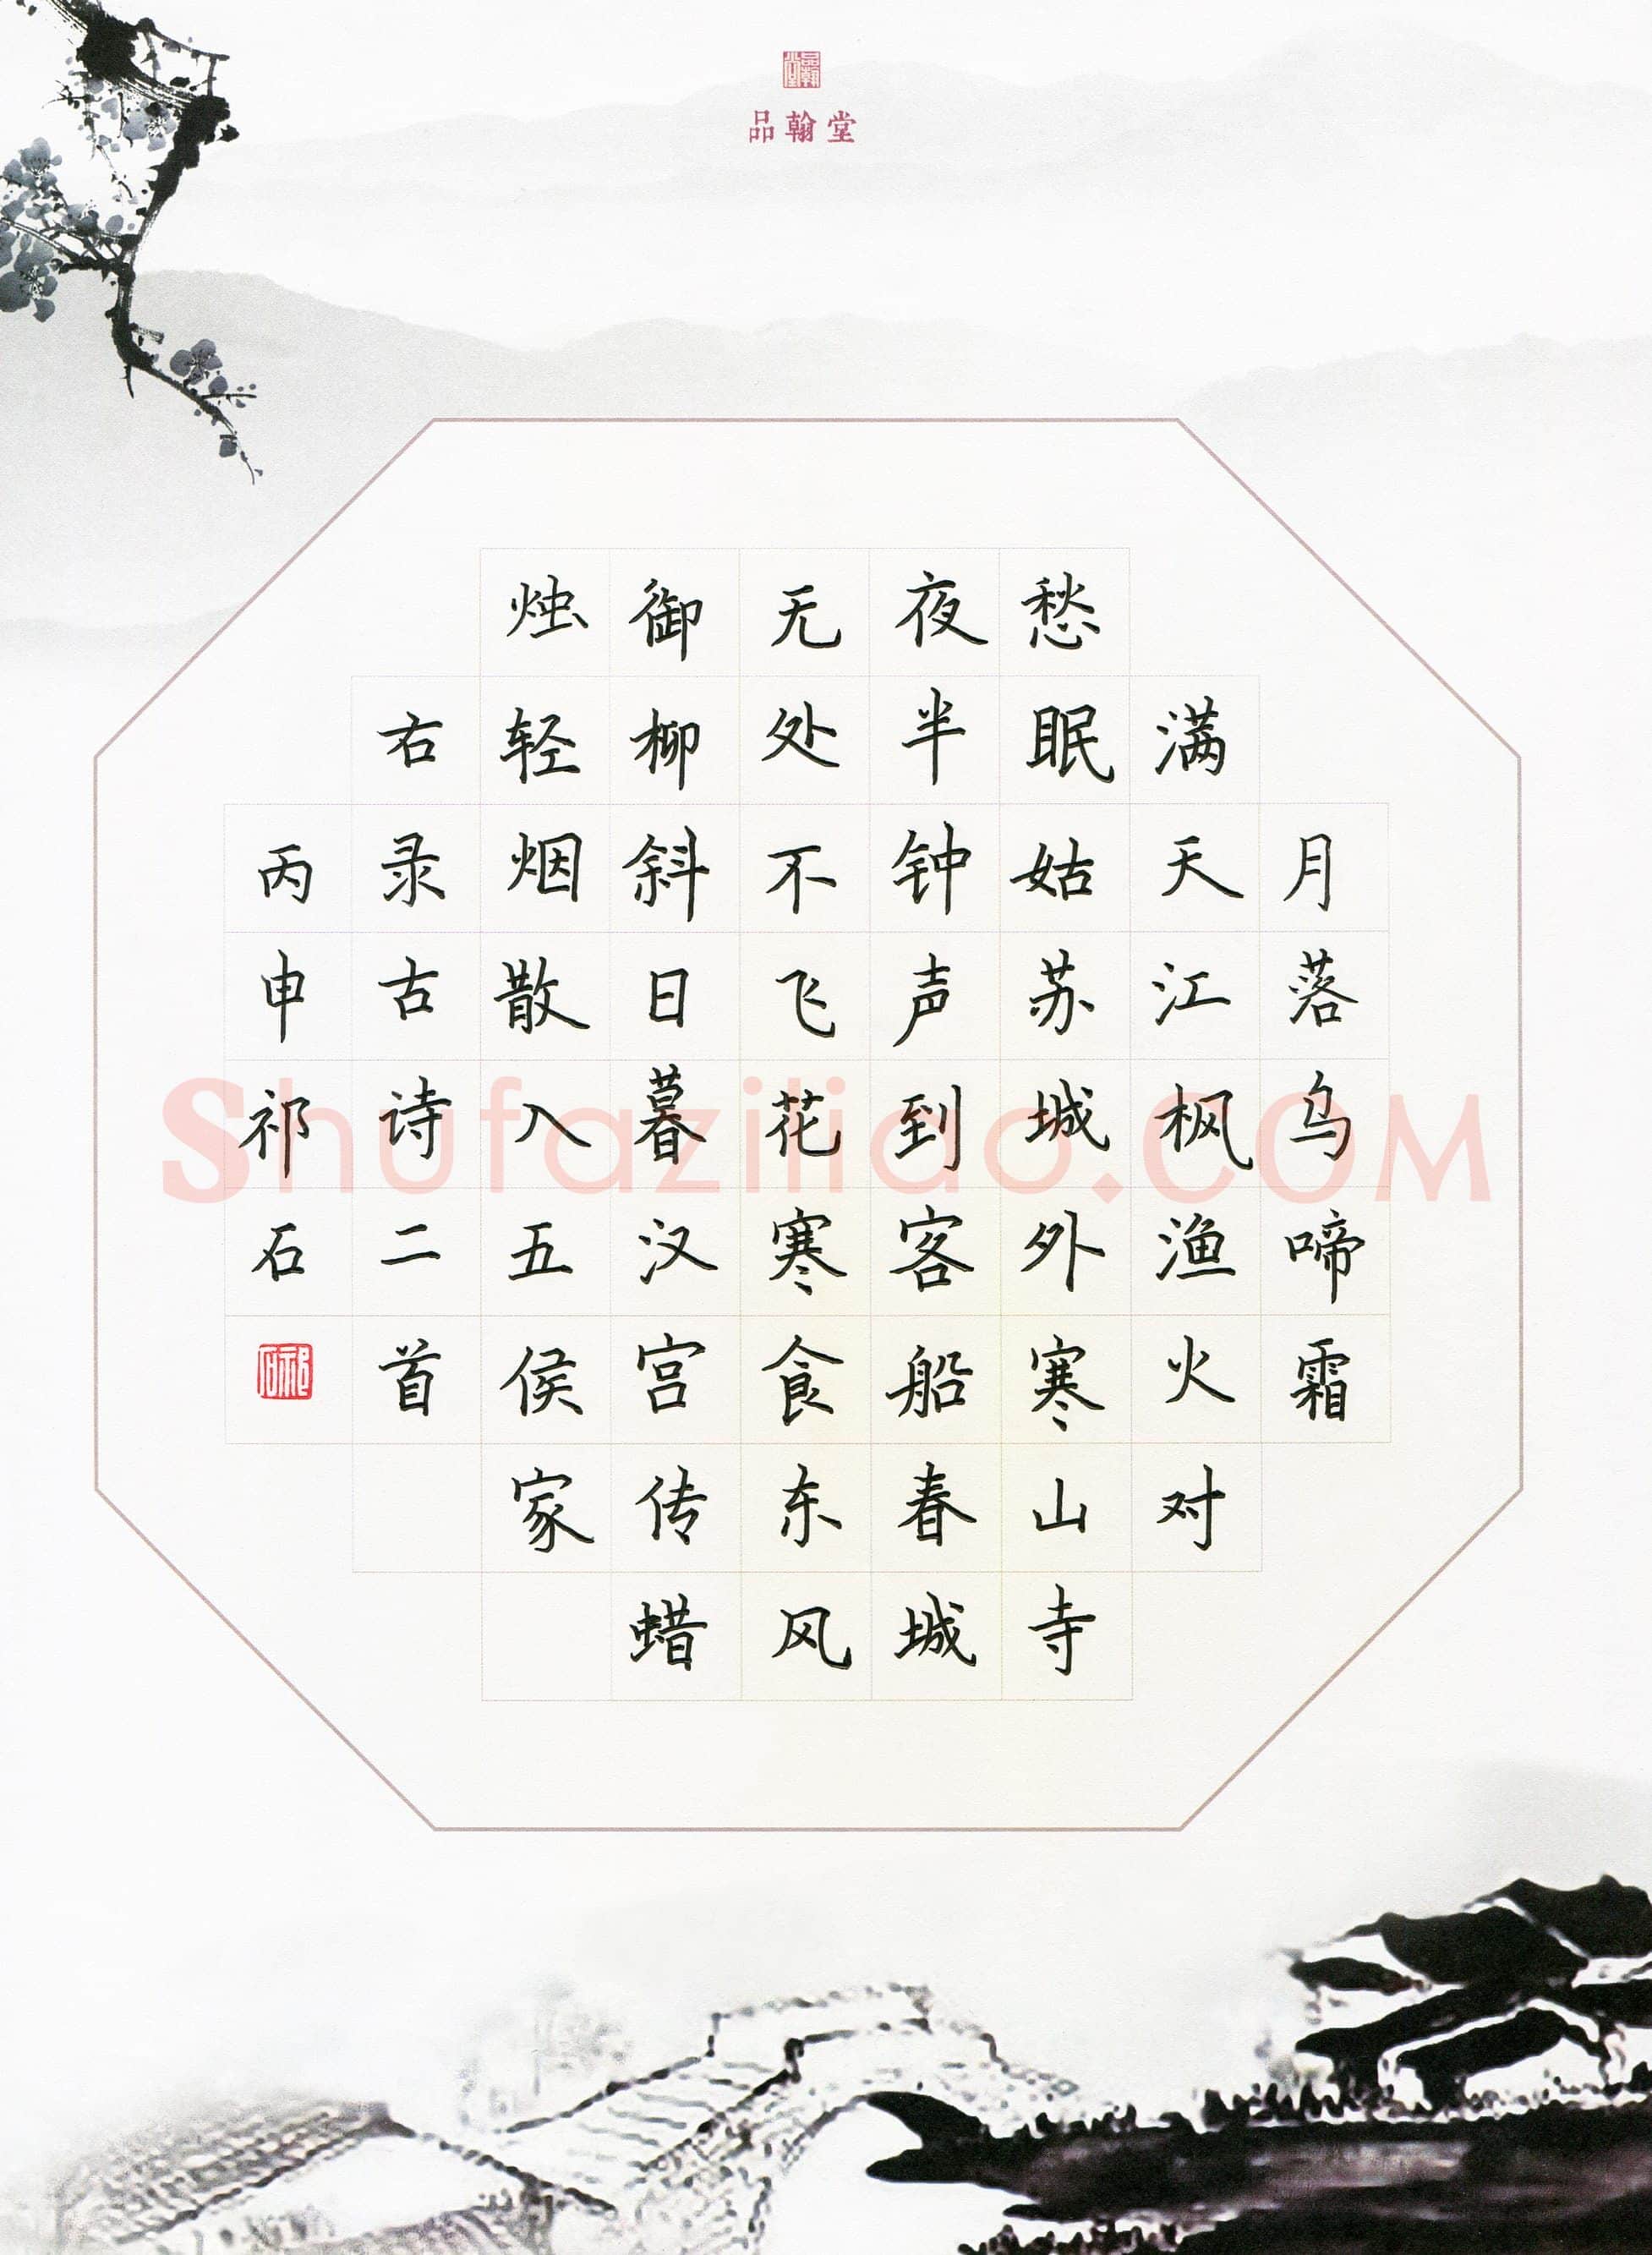 品翰堂
月落乌啼霜
满天江枫渔火对
愁眠姑苏城外寒山寺
夜半钟声到客船春城
无处不飞花寒食东风
御柳斜日暮汉宫传蜡
烛轻烟散入五侯家
右录古诗二首
丙申祁石
祁石
Shufaziliao.COM